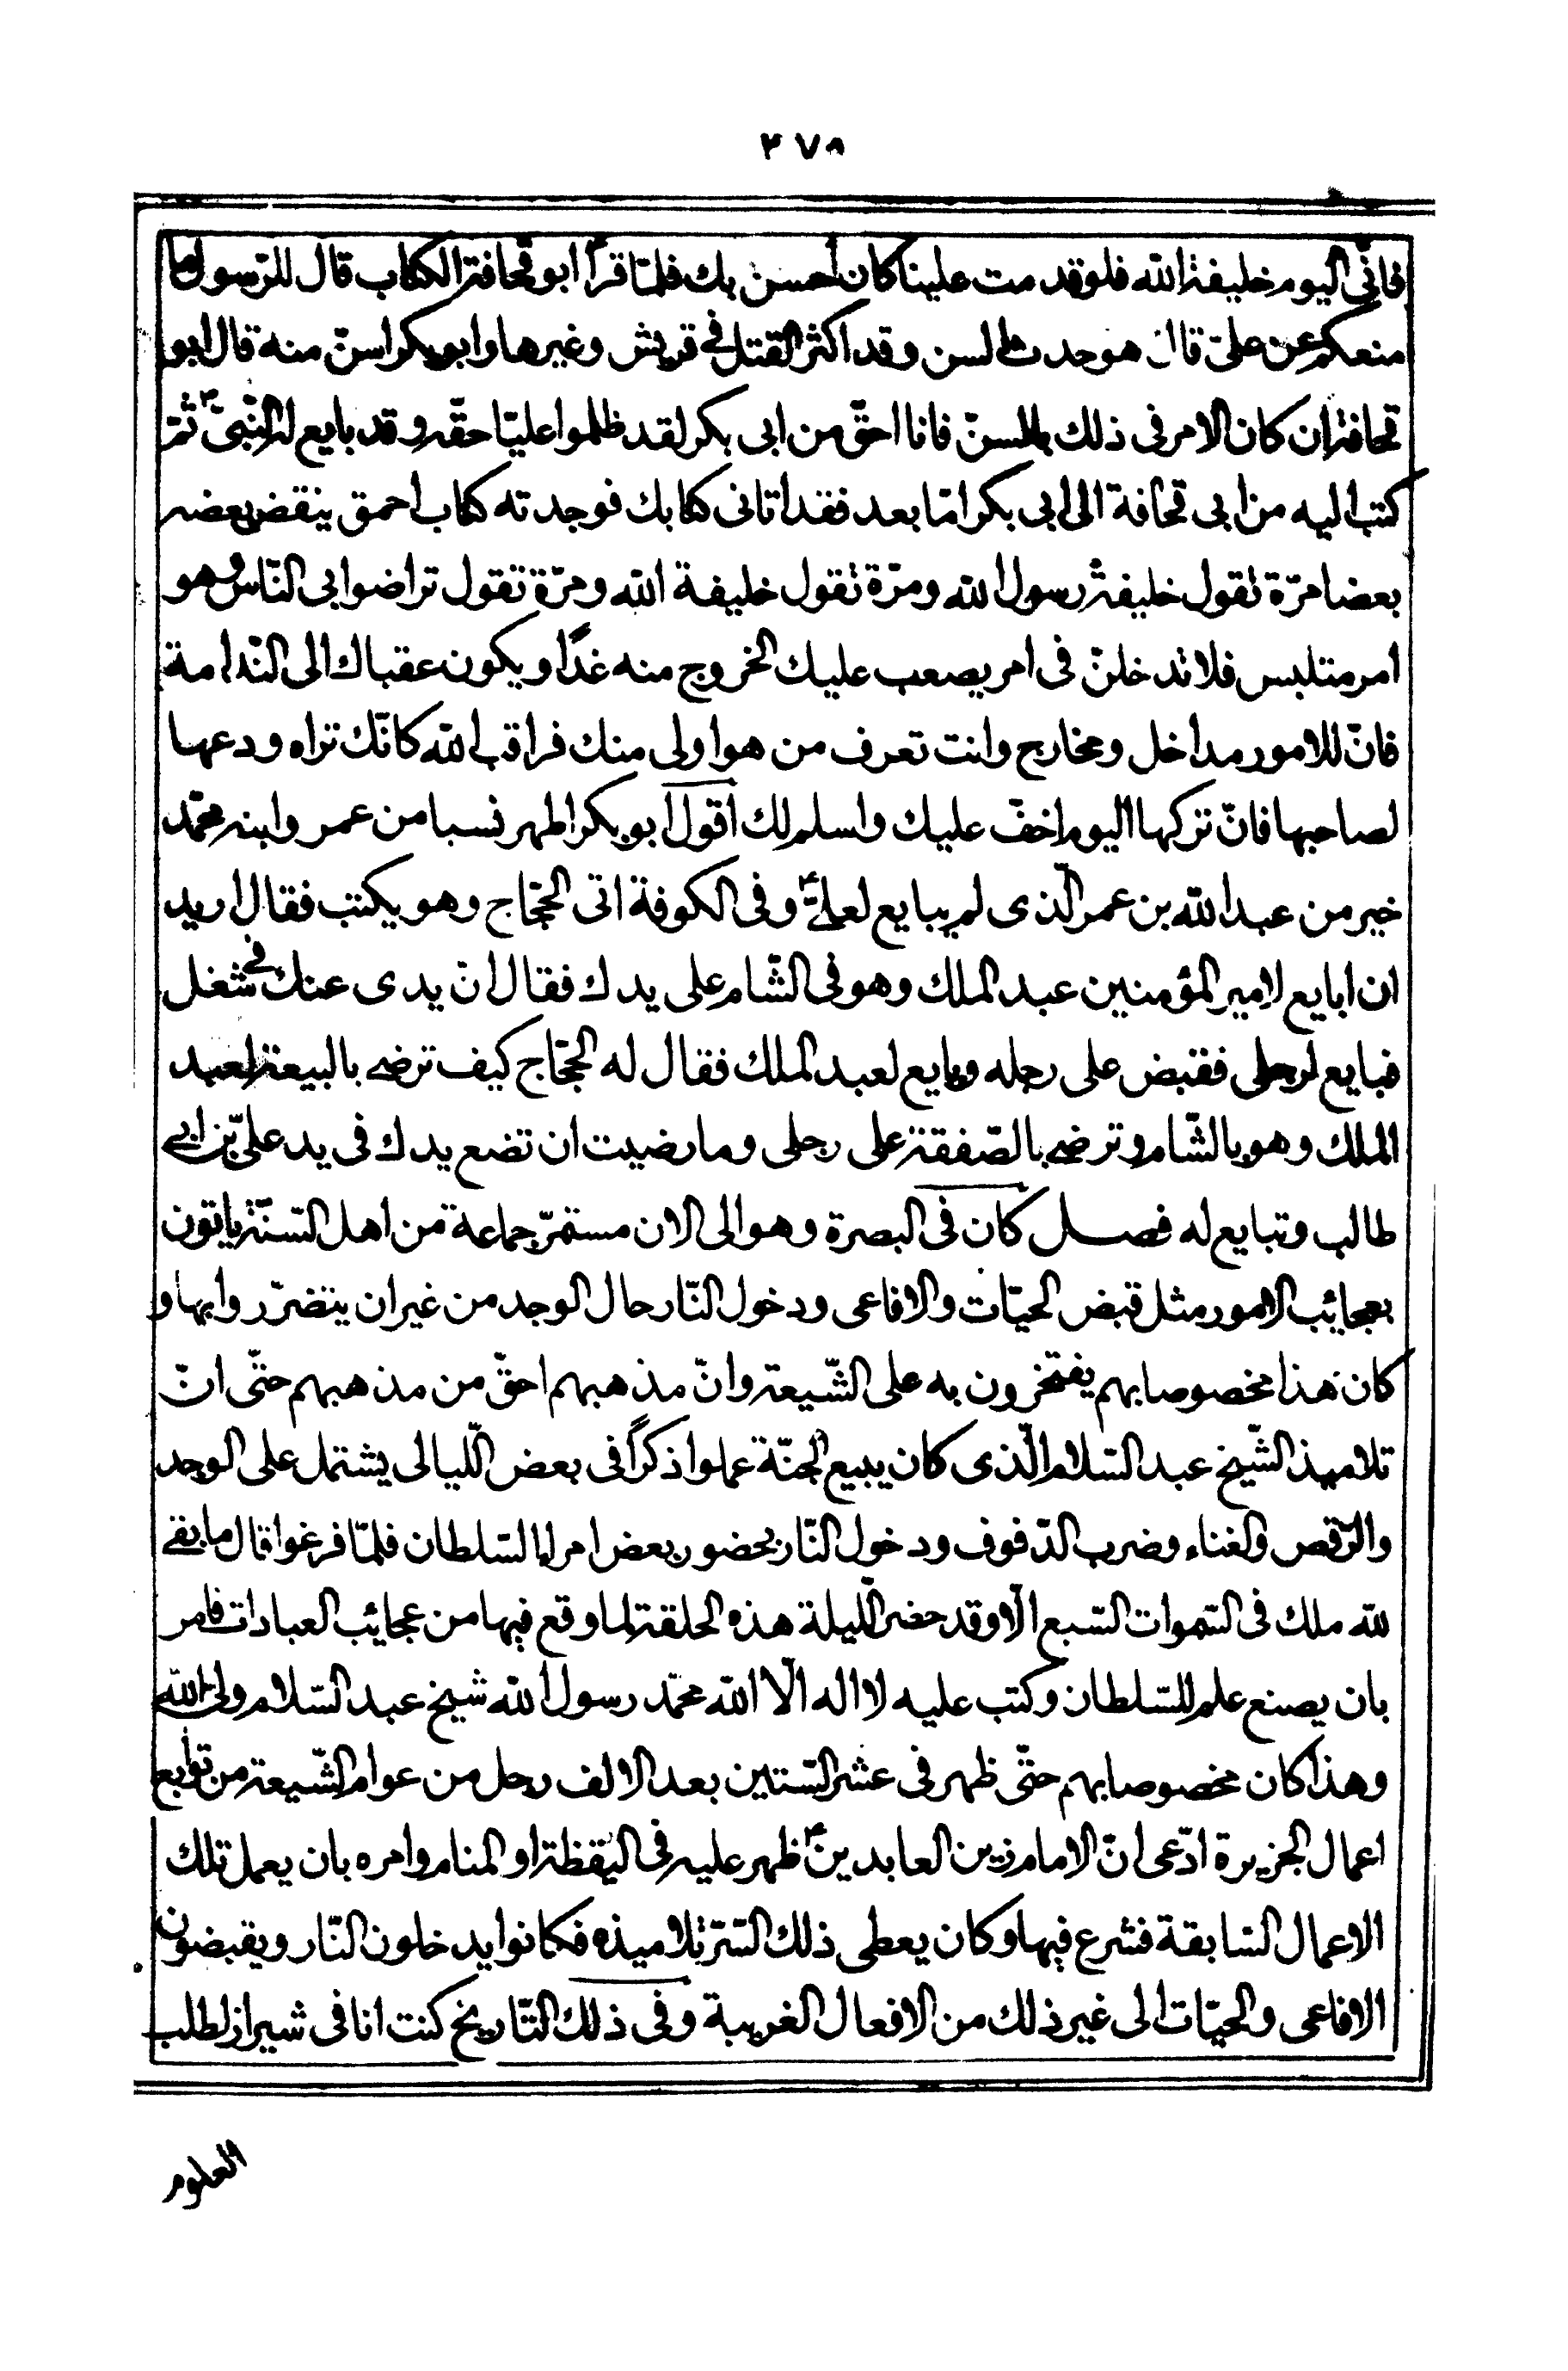 ٢٧٥
فانّى اليوم خليفة الله فلو قد مت علينا كان احسن بك فلمّا قرأ ابو قحافة الكتاب قال للرّسول ما
منعكم عن علىّ قال هو حدث السن وقد اكثر القتل فى قريش وغيرها وابو بكر اسنّ منه قال ابو
قحافة ان كان الامر فى ذلك بالسنّ فانا احقّ من ابى بكر لقد ظلموا عليّا حقّه وقد بايع له النّبىّ ثم
كتب اليه من ابى قحافة الى ابى بكر امّا بعد فقد اتانى كتابك فوجدته كتاب احمق ينقض بعضه
بعضا مرّة تقول خليفة رسول الله ومرّة تقول خليفة الله ومرّة تقول تراضوا بى النّاس وهو
امر متلبس فلا تدخلنّ فى امر يصعب عليك الخروج منه غدًا ويكون عقباك الى النّدامة
فانّ للامور مداخل ومخارج وانت تعرف من هو اولى منك فراقب الله كانّك تراه ودعها
لصاحبها فانّ تركها اليوم اخفّ عليك واسلم لك اقول ابو بكر اطهر نسبا من عمر وابنه محمّد
خير من عبد الله بن عمر الّذى لم يبايع لعلىّ وفى الكوفة اتى الحجّاج وهو يكتب فقال اريد
ان ابايع لامير المؤمنين عبد الملك وهو فى الشّام على يدك فقال انّ يدى عنك فى شغل
فبايع لرجلى فقبض على رجله وبايع لعبد الملك فقال له الحجّاج كيف ترضى بالبيعة لعبد
الملك وهو بالشّام وترضى بالصّفقة على رجلى وما رضيت ان تضع يدك فى يد علىّ بن ابى
طالب وتبايع له فصل كان فى البصرة وهو الى الان مستمرّ جماعة من اهل السّنّة ياتون
بعجائب الامور مثل قبض الحيّات والافاعى ودخول النّار حال الوجد من غير ان يتضرّروا بها و
كان هذا مخصوصا بهم يفتخرون به على الشّيعة وانّ مذهبهم احقّ من مذهبهم حتّى انّ
تلاميذ الشّيخ عبد السّلام الّذى كان يبيع الجنّة عملوا ذكرًا فى بعض اللّيالى يشتمل على الوجد
والرّقص والغناء وضرب الدّفوف ودخول النّار بحضور بعض امراء السّلطان فلمّا فرغوا قال ما بقى
لله ملك فى السّموات السّبع الّا وقد حضر اللّيلة هذه الحلقة لما وقع فيها من عجايب العبادات فامر
بان يصنع علم للسّلطان وكتب عليه لا اله الّا الله محمّد رسول الله شيخ عبد السّلام ولىّ الله
وهذا كان مخصوصا بهم حتّى ظهر فى عشر السّتين بعد الالف رجل من عوام الشّيعة من توابع
اعمال الجزيرة ادّعى انّ الامام زين العابدين ظهر عليه فى اليقظة او المنام وامره بان يعمل تلك
الاعمال السّابقة فشرع فيها وكان يعطى ذلك السّرّ تلاميذه فكانوا يدخلون النّار ويقبضون
الافاعى والحيّات الى غير ذلك من الافعال الغريبة وفى ذلك التّاريخ كنت انا فى شيراز لطلب
العلوم